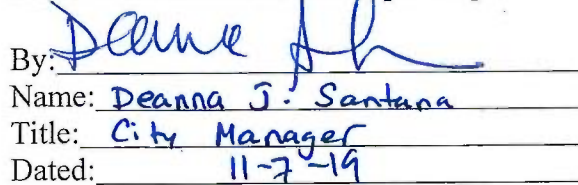 By: Deanna S
Name: Deanna J. Santana
Title: City Manager
Dated: 11-7-19